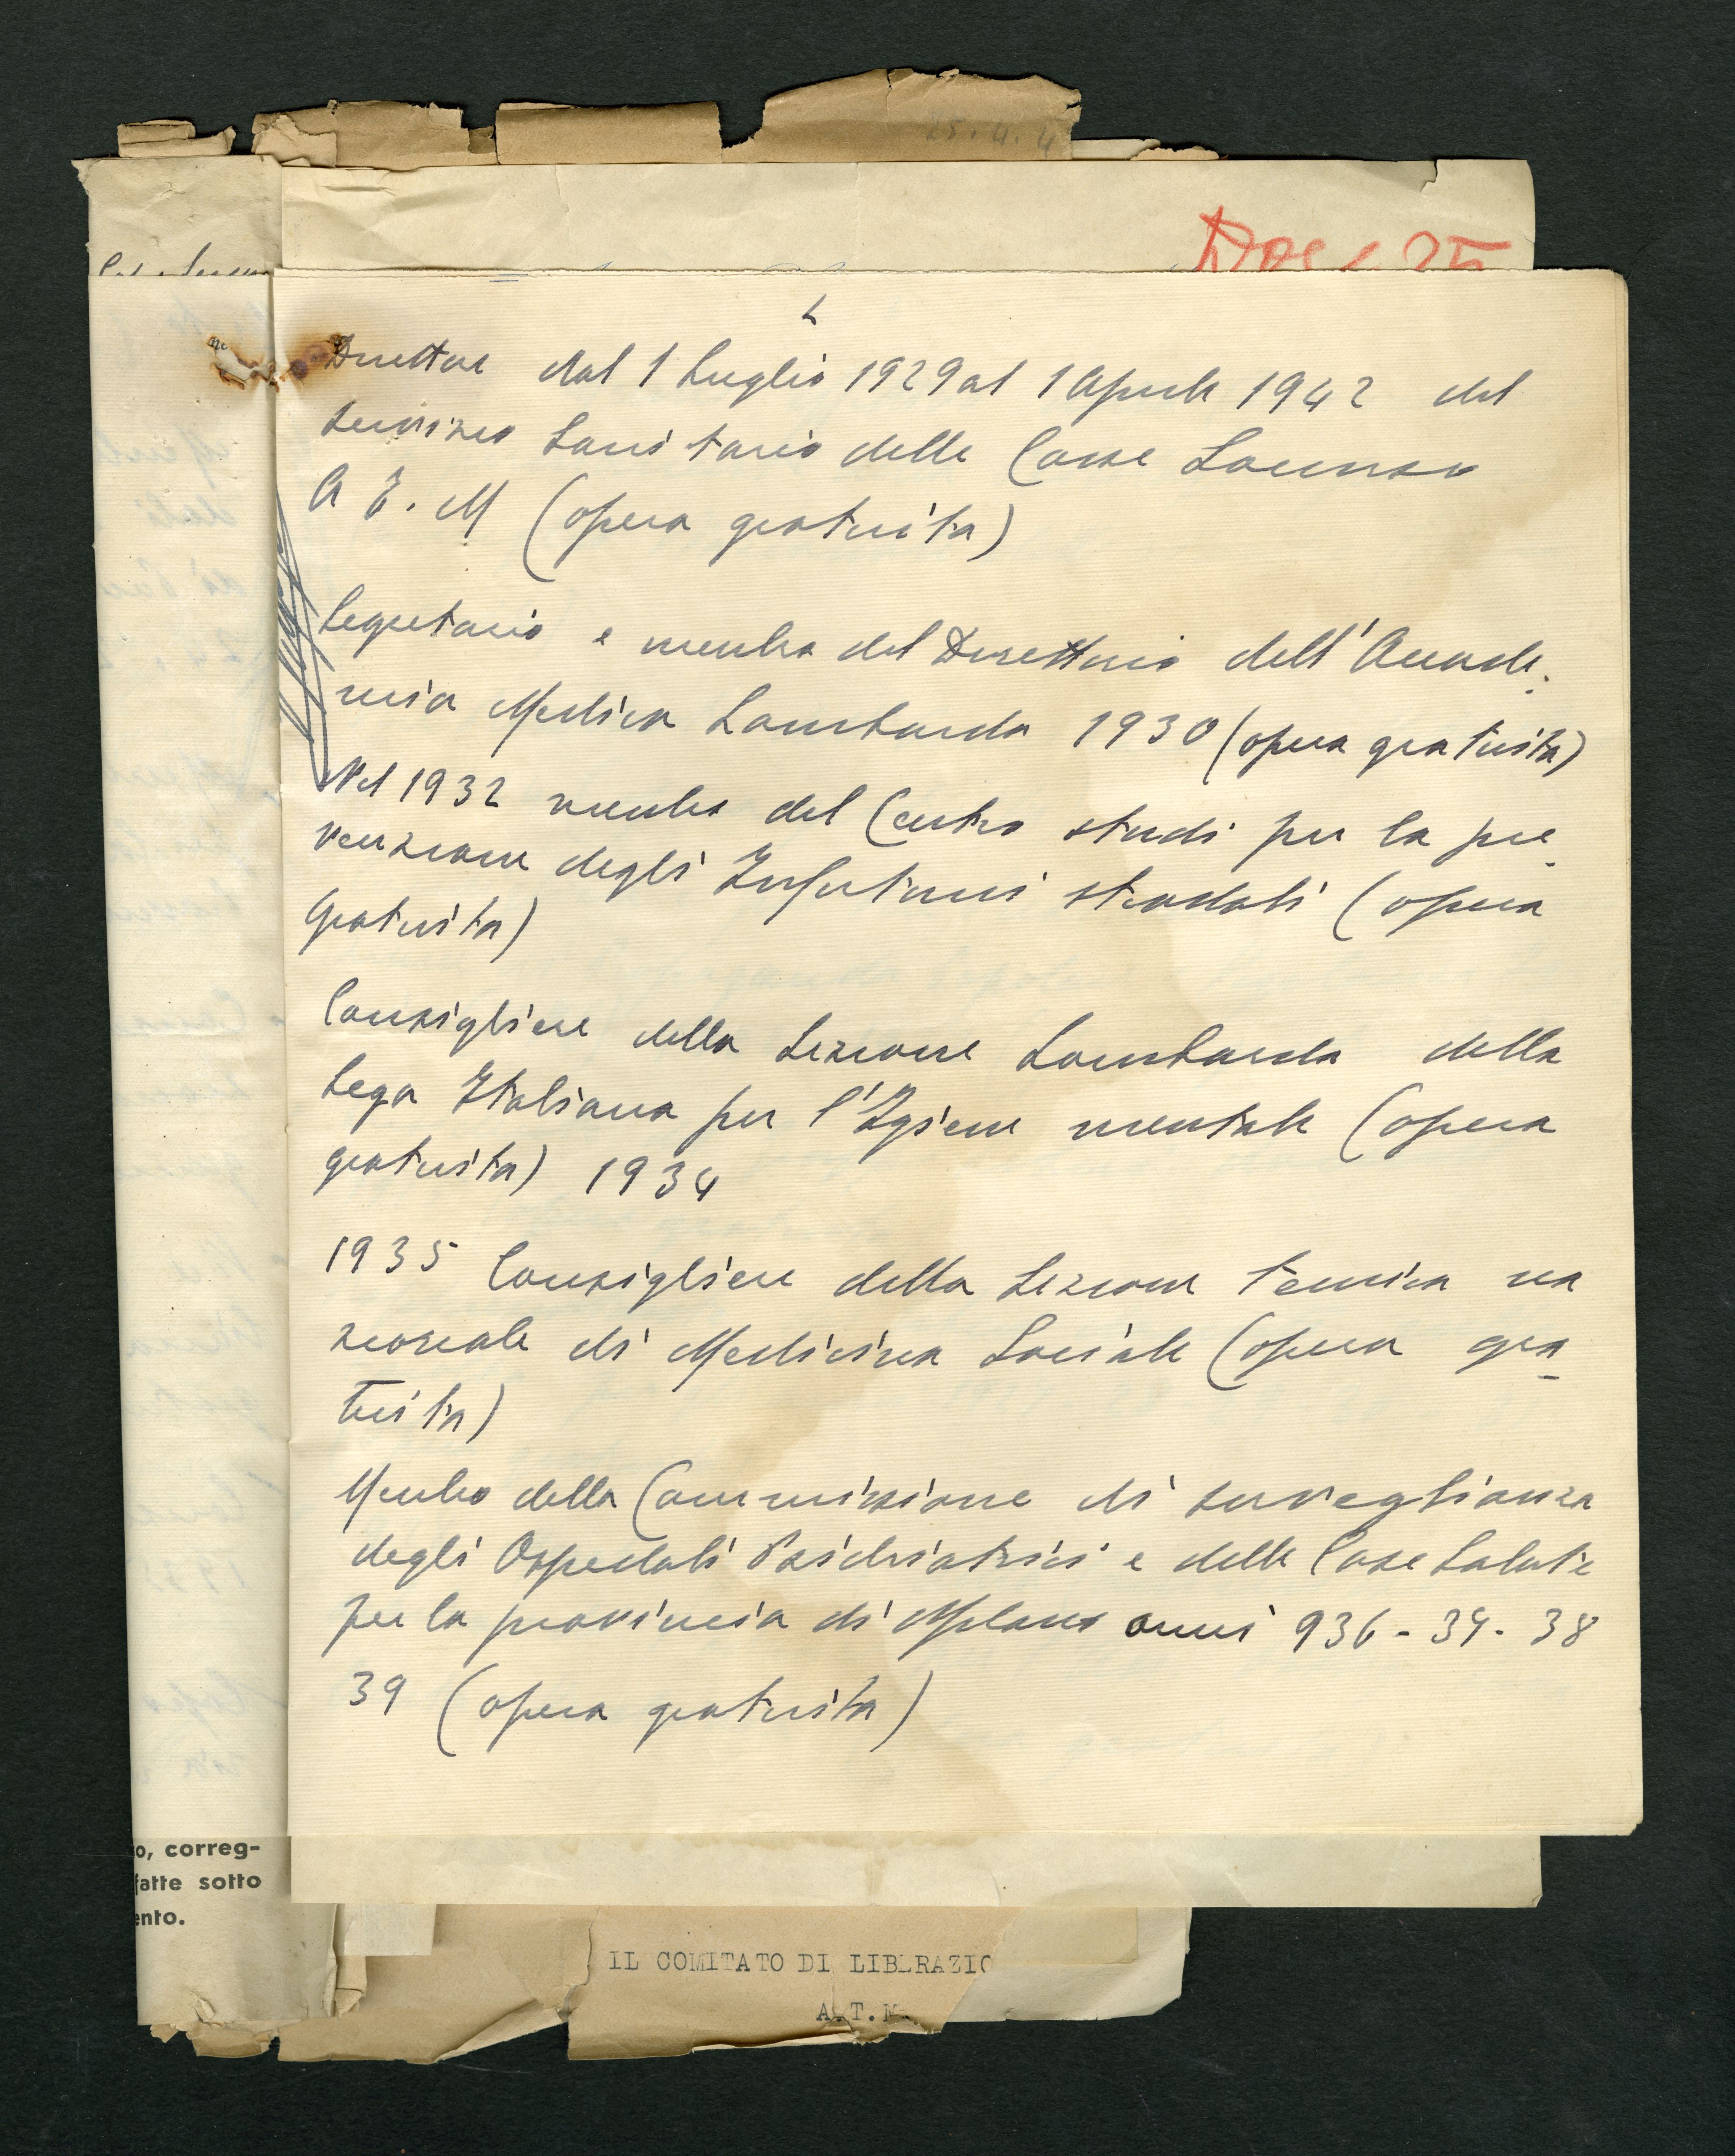 25.4.4
2
Direttore dal 1 Luglio 1929 al 1 Aprile 1942 del
servizio Sanitario delle Casse Soccorso
A T. M (opera gratuita)
Segretario e membro del Direttorio dell'Accade-
mia Medica Lombarda 1930 (opera gratuita)
Nel 1932 membro del Centro studi per la pre-
venzione degli Infortuni stradali (opera
gratuita)
Consigliere della Sezione Lombarda della
Lega Italiana per l'Igiene mentale (opera
gratuita) 1934
1935 Consigliere della Sezione tecnica na
zionale di Medicina Sociale (opera gra-
tuita)
Membro della Commissione di sorveglianza
degli Ospedali Psichiatrici e delle Case Salute
per la provincia di Milano anni 936-37-38
39 (opera gratuita)
o, correg-
fatte sotto
ento.
IL COMITATO DI LIBERAZIO
A.T.M.